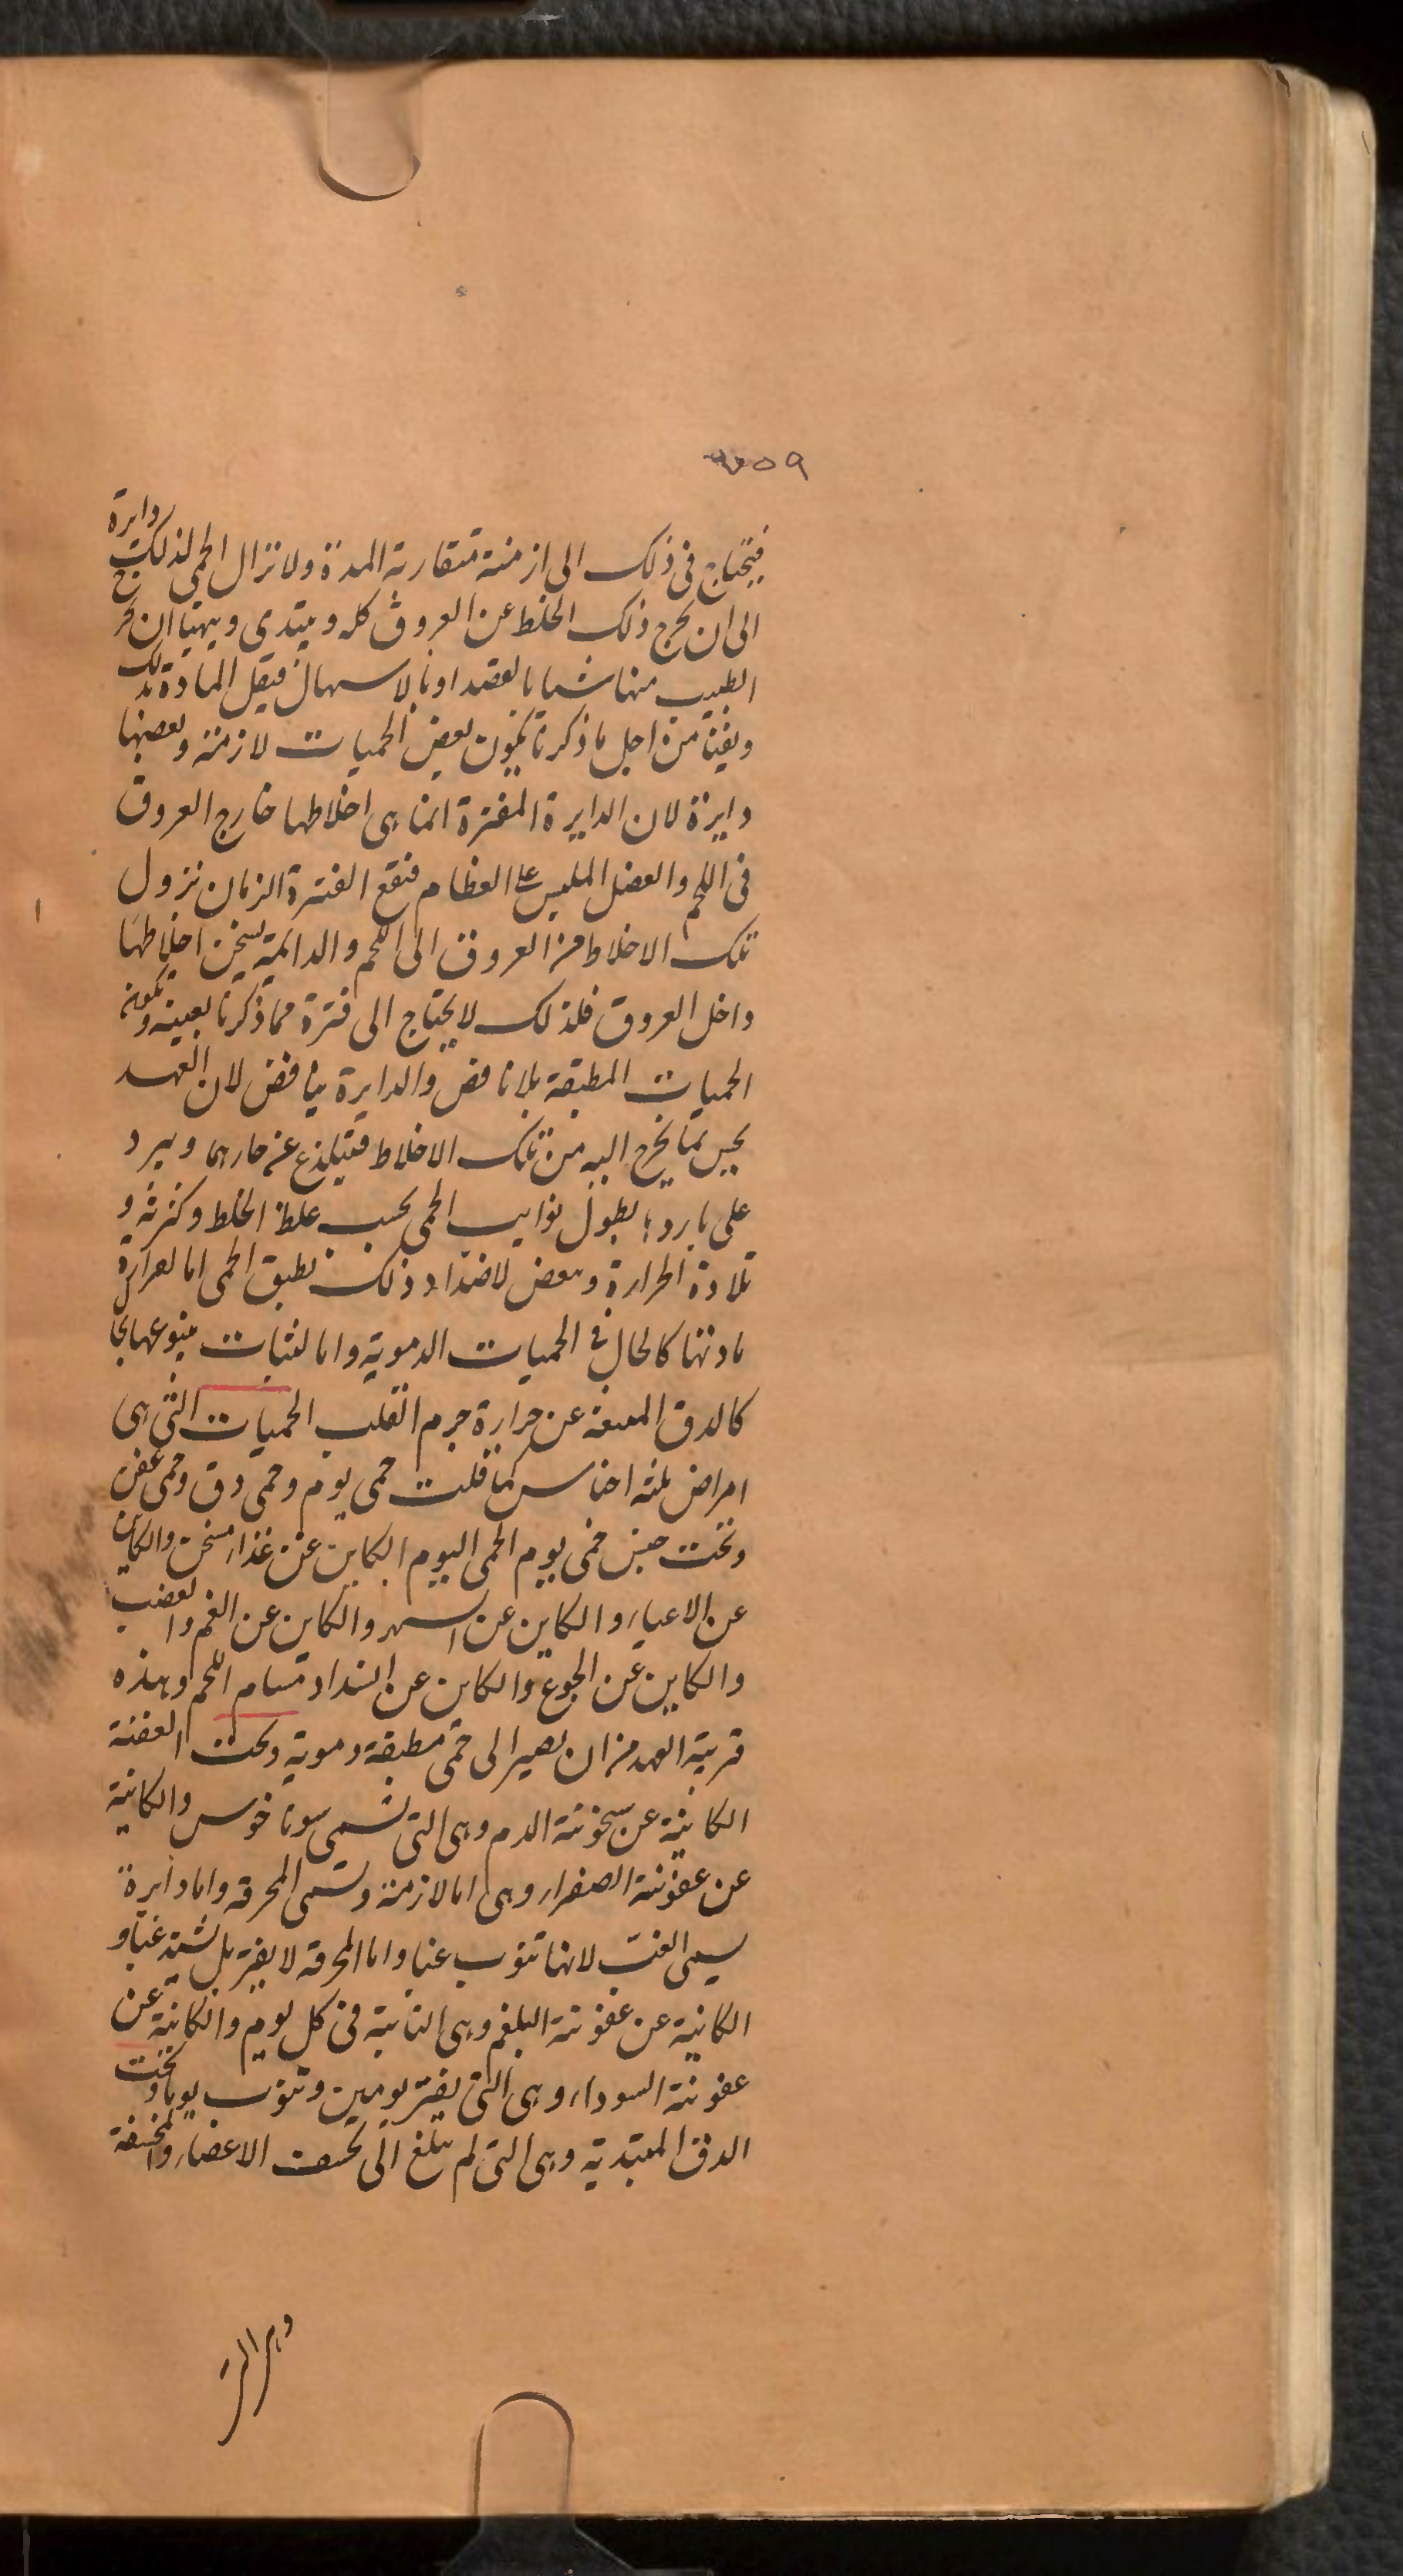 ٣٥٩
فيحتاج فى ذلك الى ازمنة متقاربة المدة ولا تزال الحمى لذلك دايرة
الى ان يخرج ذلك الخلط عن العروق كله ويبتدى ويهيا ان يخرج
الطبيب منها شيا بالفصد او بالاسهال فيقل المادة بذلك
من اجل ما ذكرنا يكون بعض الحميات لازمة وبعضها
دايرة لان الدايرة المفترة انما هى اخلاطها خارج العروق
فى اللحم والعضل الملبس على العظام فتقع الفترة الزمان نزول
تلك الاخلاط من العروق الى اللحم والدائمة يسخن اخلاطها
داخل العروق فلذلك لا يحتاج الى فترة مما ذكرنا بعينه وتكون
الحميات المطبقة بلا نافض والدايرة بنافض لان
يحس بما يخرج اليه من تلك الاخلاط فيتلذع عن حارها ويبرد
على باردها بطول نوايب الحمى بحسب غلظ الخلط وكثرته و
الحرارة وبعض لاضداد ذلك تطبق الحمى اما لغزارة
مادتها كالحال فى الحميات الدموية واما لثبات ينبوعها بها
كالدق عن حرارة جرم القلب الحميات التى هى
امراض ثلثة اجناس كما قلت حمى يوم وحمى دق وحمى عفن
وتحت جنس حمى يوم الحمى اليوم الكاين عن غذاء مسخن والكاين
عن الاعياء والكاين عن السهر والكاين عن الغم والغضب
والكاين عن الجوع والكاين عن انسداد مسام اللحم وهذه
قريبة العهد من ان يصير الى حمى مطبقة دموية وتحت العفنة
الكاينة عن سخونة الدم وهى التى تسمى سوناخوس والكاينة
عن عفونة الصفراء وهى اما لازمة وتسمى المحرقة واما دايرة
يسمى الغب لانها تنوب غبا واما المحرقة لا يفتر بل تشتد غبا و
الكاينة عن عفونة البلغم وهى النائبة فى كل يوم والكاينة عن
عفونة السوداء وهى التى يفتر يومين وتنوب يوما وتحت
الدق المبتدية وهى التى لم تبلغ الى الاعضاء